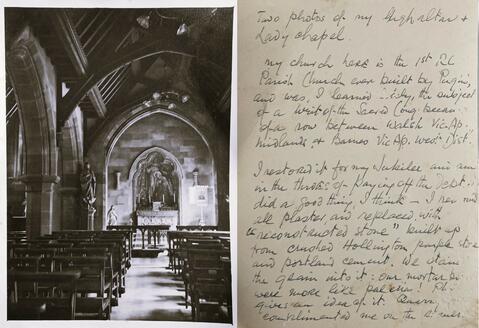 Two photos of my High altar &
Lady chapel.
my church here is the 1st RC
Parish Church ever built by Pugin,
and was, I learned lately, the subject
of a writ of the Sacred Cong. because
of a row between Walsh Vic. Ap.
Midlands & Baines Vic Ap. West Dist.
I restored it for my Jubilee and am
in the throes of paying off the Debt. I
did a good thing I think – I removed
all plaster and replaced with
"reconstructed stone" built up
from crushed Hollington purple stone
and portland cement. We
the grain into it: our mortar
were more like palettes! Ph.
gives an idea of it.
complimented me on the